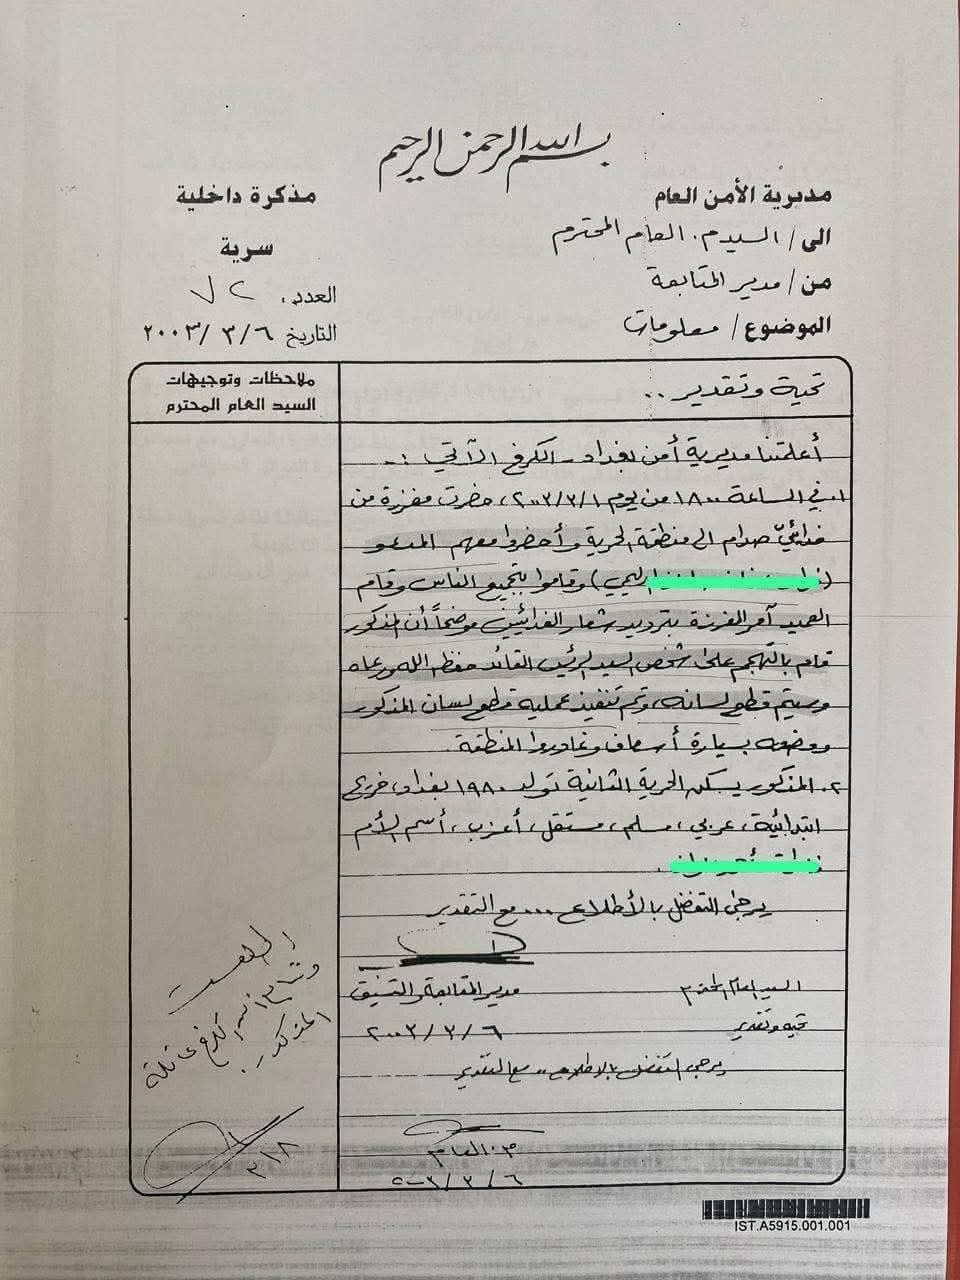 بسم الله الرحمن الرحيم
مديرية الأمن العام
مذكرة داخلية
الى / السيد م. العام المحترم
سرية
من / مدير المتابعة
العدد، ٧٢
الموضوع / معلومات
التاريخ ٢٠٠٣/٣/٦
ملاحظات وتوجيهات
السيد العام المحترم
تحية وتقدير ..
أعلمتنا مديرية أمن بغداد - الكرخ الآتي :-
١. في الساعة ١٨٠٠ من يوم ٢٠٠٣/٣/١، حضرت مفرزة من
فدائيّ صدام الى منطقة الحرية وأحضروا معهم المدعو
( التميمي) وقاموا بتجميع الناس وقام
العميد آمر المفرزة بترديد شعار الفدائيين موضحاً أن المذكور
قام بالتهجم على شخص السيد الرئيس القائد حفظه الله ورعاه
وسيتم قطع لسانه، وتم تنفيذ عملية قطع لسان المذكور
ووضعه بسيارة أسعاف وغادروا المنطقة.
٢. المذكور يسكن الحرية الثانية تولد ١٩٨٠ بغداد، خريج
ابتدائية، عربي، مسلم، مستقل، أعزب، أسم الأم
يرجى التفضل بالأطلاع ... مع التقدير
مدير المتابعة والتنسيق
٢٠٠٣/٣/٦
السيد العام المحترم
تحية وتقدير
يرجى التفضل بالاطلاع .. مع التقدير
م. العام
٢٠٠٣/٣/٦
اطلعت
المذكور.
٣/٨
IST.A5915.001.001